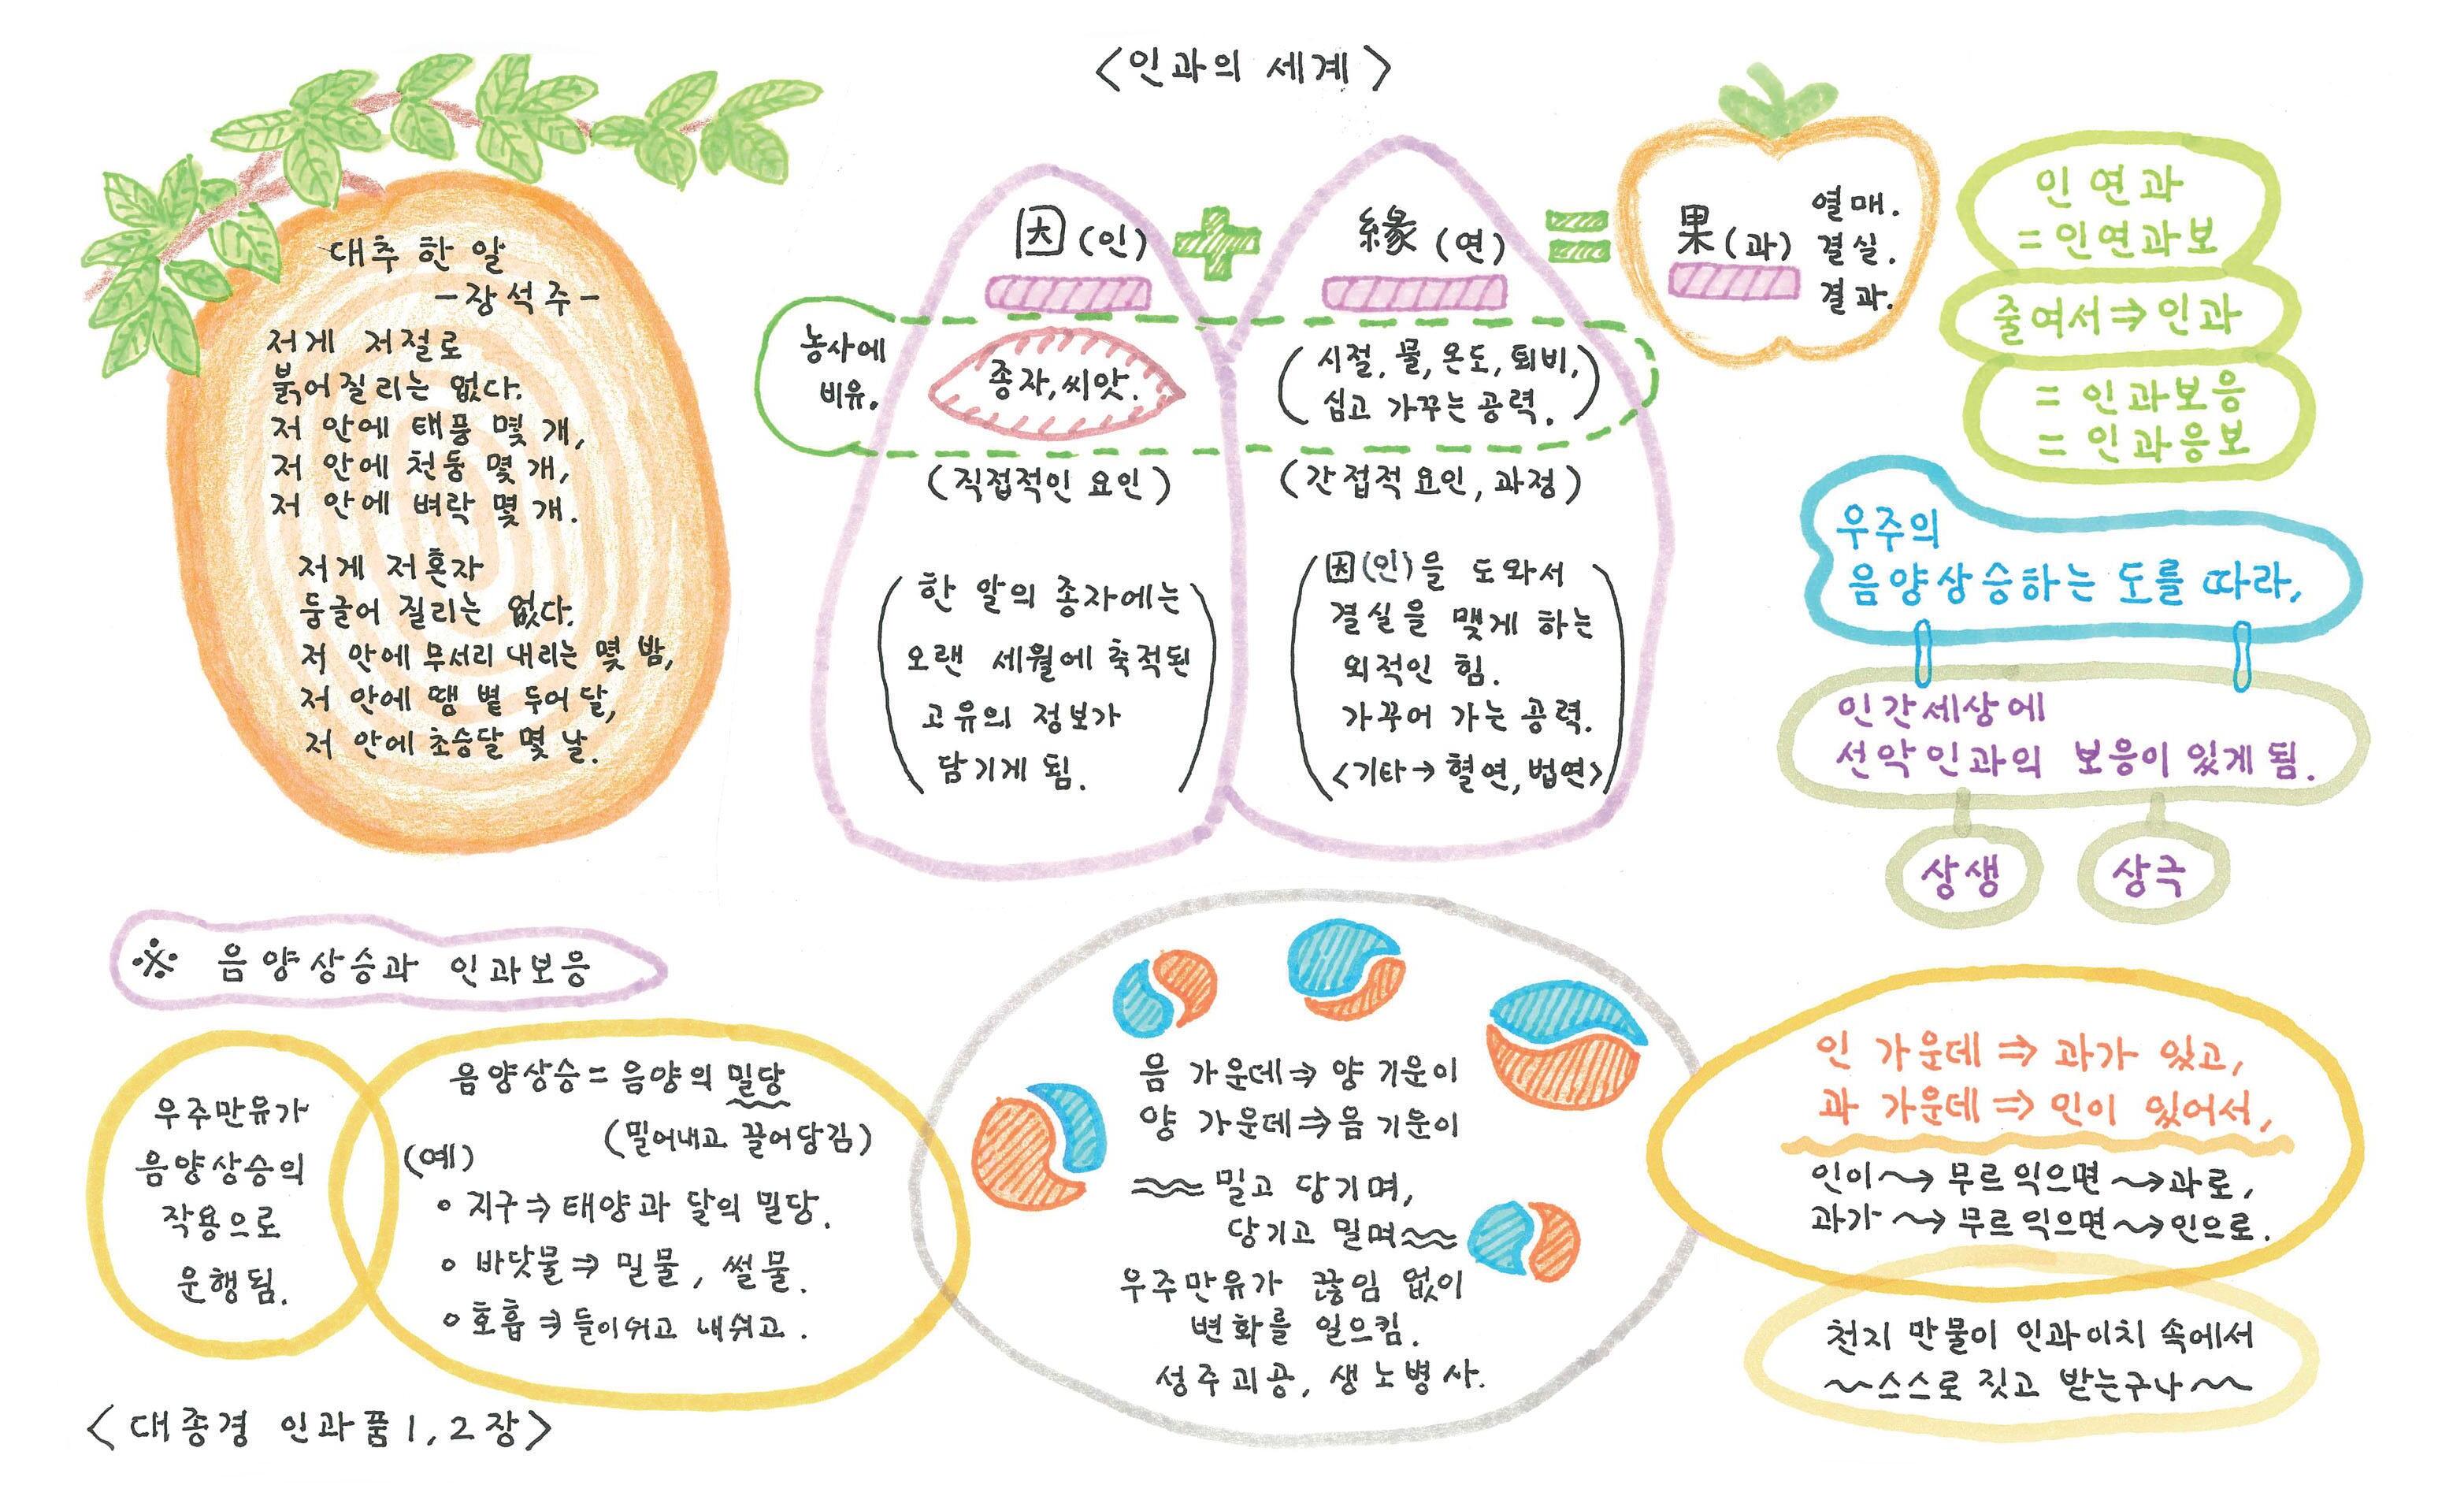 <인과의 세계>
대추 한 알
-장석주-
저게 저절로
붉어질리는 없다.
저 안에 태풍 몇 개,
저 안에 천둥 몇 개,
저 안에 벼락 몇 개.
저게 저혼자
둥글어 질리는 없다.
저 안에 무서리 내리는 몇 밤,
저 안에 땡 볕 두어 달,
저 안에 초승달 몇 날.
因(인) + 緣(연) = 果(과)
열매.
결실.
결과.
농사에
비유.
종자,씨앗.
(시절, 물, 온도, 퇴비,
심고 가꾸는 공력.)
(직접적인 요인)
(간접적 요인, 과정)
(한 알의 종자에는
오랜 세월에 축적된
고유의 정보가
담기게 됨.)
(因(인)을 도와서
결실을 맺게 하는
외적인 힘.
가꾸어 가는 공력.
<기타→혈연, 법연>)
인연과
=인연과보
줄여서⇒인과
=인과보응
=인과응보
우주의
음양상승하는 도를 따라,
인간세상에
선악인과의 보응이 있게 됨.
상생
상극
※ 음양상승과 인과보응
우주만유가
음양상승의
작용으로
운행됨.
음양상승=음양의 밀당
(밀어내고 끌어당김)
(예)
◦ 지구⇒태양과 달의 밀당.
◦ 바닷물⇒밀물, 썰물.
◦ 호흡⇒들이쉬고 내쉬고.
음 가운데⇒양 기운이
양 가운데⇒음 기운이
밀고 당기며,
당기고 밀며
우주만유가 끊임 없이
변화를 일으킴.
성주괴공, 생노병사.
인 가운데⇒과가 있고,
과 가운데⇒인이 있어서,
인이→무르익으면→과로,
과가→무르익으면→인으로.
천지 만물이 인과이치 속에서
~스스로 짓고 받는구나~
<대종경 인과품1,2장>